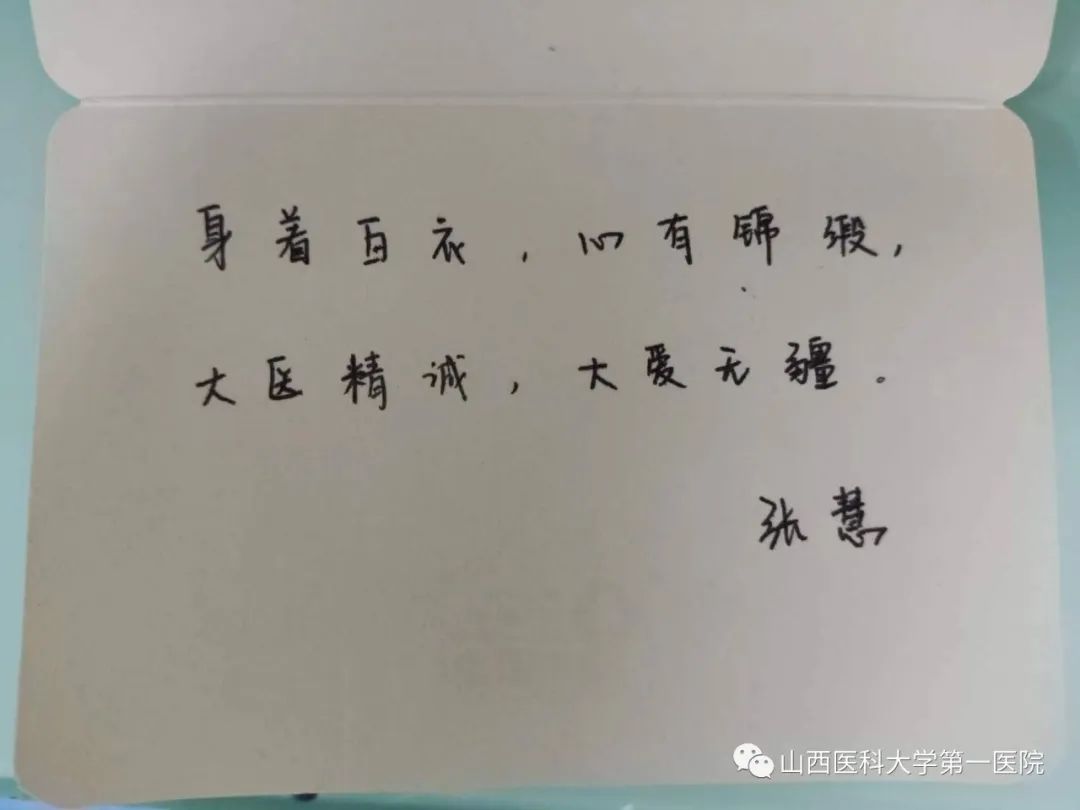 身着白衣，心有锦缎，
大医精诚，大爱无疆。
张慧
山西医科大学第一医院